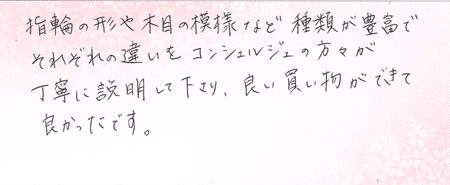 指輪の形や木目の模様など種類が豊富で
それぞれの違いをコンシェルジュの方々が
丁寧に説明して下さり、良い買い物ができて
良かったです。